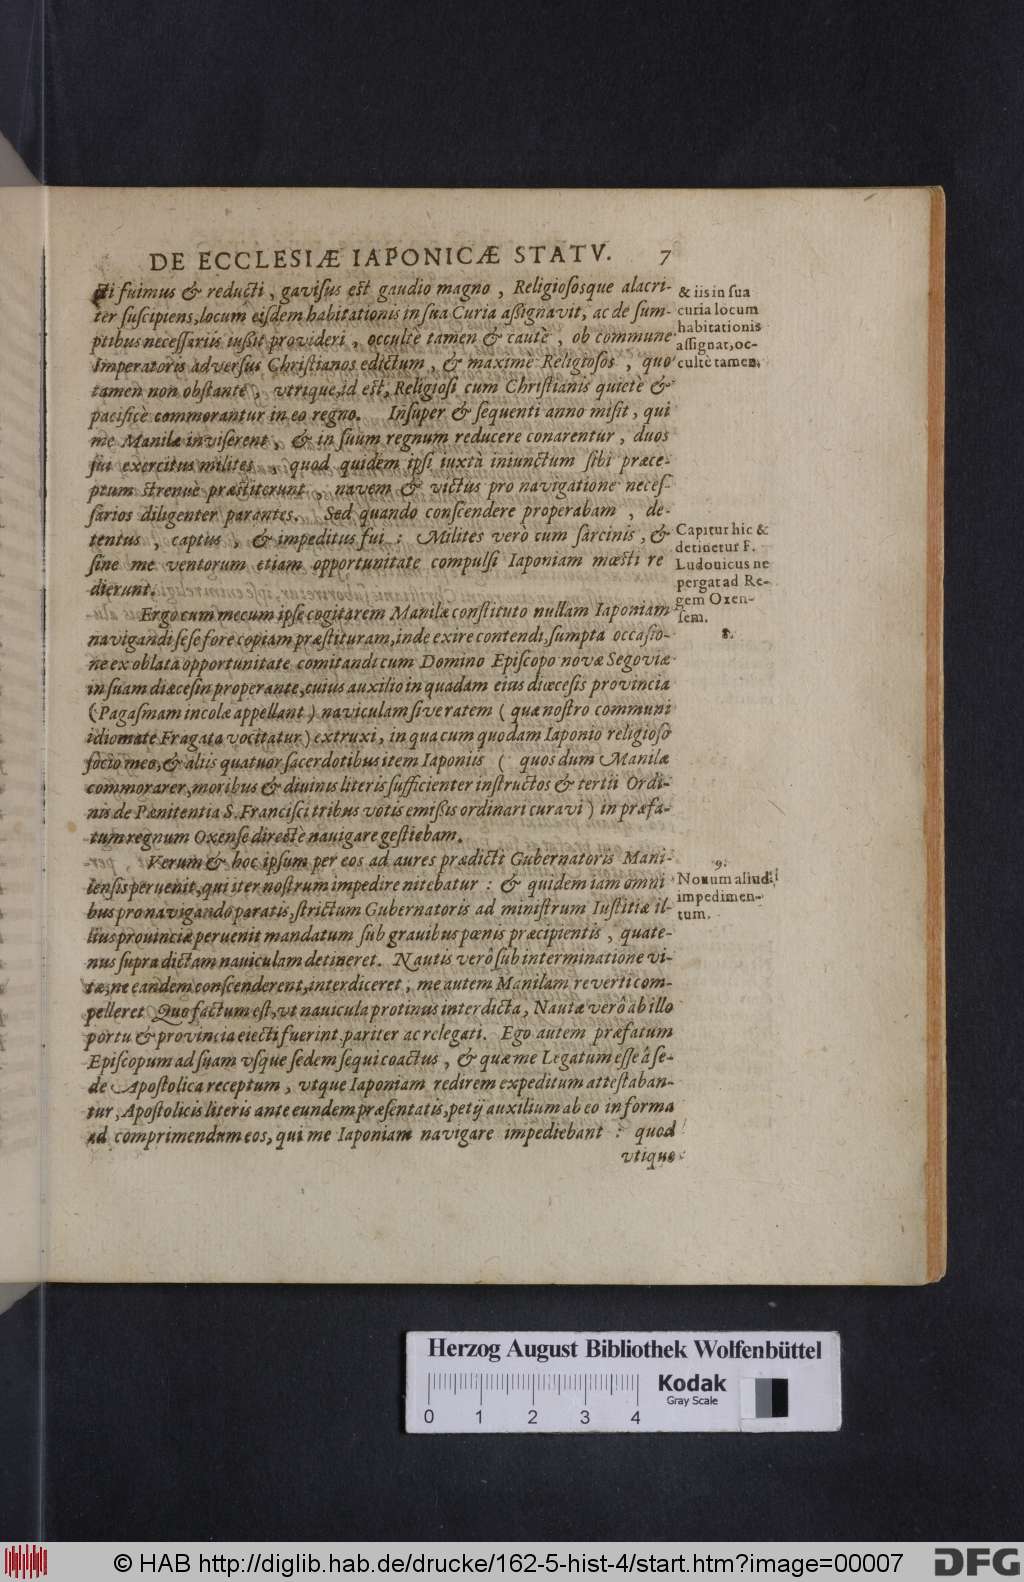 DE ECCLESIÆ IAPONICÆ STATV. 7
cti fuimus & reducti, gavisus est gaudio magno, Religiososque alacri-
ter suscipiens, locum eisdem habitationis in sua Curia aßignavit, ac de sum-
ptibus necessariis iussit provideri, occultè tamen & cautè, ob commune
Imperatoris adversus Christianos edictum, & maximè Religiosos, quo
tamen non obstante, vtrique, id est, Religiosi cum Christianis quietè &
pacificè commorantur in eo regno. Insuper & sequenti anno misit, qui
me Manilæ inviserent, & in suum regnum reducere conarentur, duos
sui exercitus milites, quod quidem ipsi iuxtà iniunctum sibi præce-
ptum strenuè præstiterunt, navem & victus pro navigatione neces-
sarios diligenter parantes. Sed quando conscendere properabam, de-
tentus, captus, & impeditus fui: Milites verò cum sarcinis, &
sine me ventorum etiam opportunitate compulsi Iaponiam mœsti re
dierunt.
Ergo cum mecum ipse cogitarem Manilæ constituto nullam Iaponiam
navigandi sese fore copiam præstituram, inde exire contendi, sumpta occasio-
ne ex oblata opportunitate comitandi cum Domino Episcopo novæ Segoviæ
in suam diæcesin properante, cuius auxilio in quadam eius diœcesis provincia
(Pagasmam incolæ appellant) naviculam sive ratem (quæ nostro communi
idiomate Fragata vocitatur) extruxi, in qua cum quodam Iaponio religioso
socio meo, & aliis quatuor sacerdotibus item Iaponiis (quos dum Manilæ
commorarer, moribus & divinis literis sufficienter instructos & tertii Ordi-
nis de Pœnitentia S. Francisci tribus votis emißis ordinari curavi) in præfa-
tum regnum Oxense directè nauigare gestiebam.
Verum & hoc ipsum per eos ad aures prædicti Gubernatoris Mani-
lensis peruenit, qui iter nostrum impedire nitebatur: & quidem iam omni
bus pro navigando paratis, strictum Gubernatoris ad ministrum Iustitiæ il-
lius prouinciæ peruenit mandatum sub grauibus pœnis præcipientis, quate-
nus supra dictam nauiculam detineret. Nautis verô sub interminatione vi-
tæ, ne eandem conscenderent, interdiceret, me autem Manilam reverti com-
pelleret Quo factum est, vt nauicula protinus interdicta, Nautæ verô ab illo
portu & provincia eiecti fuerint pariter ac relegati. Ego autem præfatum
Episcopum ad suam vsque sedem sequi coactus, & quæ me Legatum esse â se-
de Apostolica receptum, vtque Iaponiam redirem expeditum attestaban-
tur, Apostolicis literis ante eundem præsentatis, petij auxilium ab eo in forma
ad comprimendum eos, qui me Iaponiam navigare impediebant: quod
vtique
& iis in sua
curia locum
habitationis
assignat, oc-
cultè tamen.
Capitur hic &
detinetur F.
Ludouicus ne
pergat ad Re-
gem Oxen-
sem.
8.
9.
Nouum aliud
impedimen-
tum.
Herzog August Bibliothek Wolfenbüttel
Kodak
Gray Scale
0 1 2 3 4
© HAB http://diglib.hab.de/drucke/162-5-hist-4/start.htm?image=00007
DFG